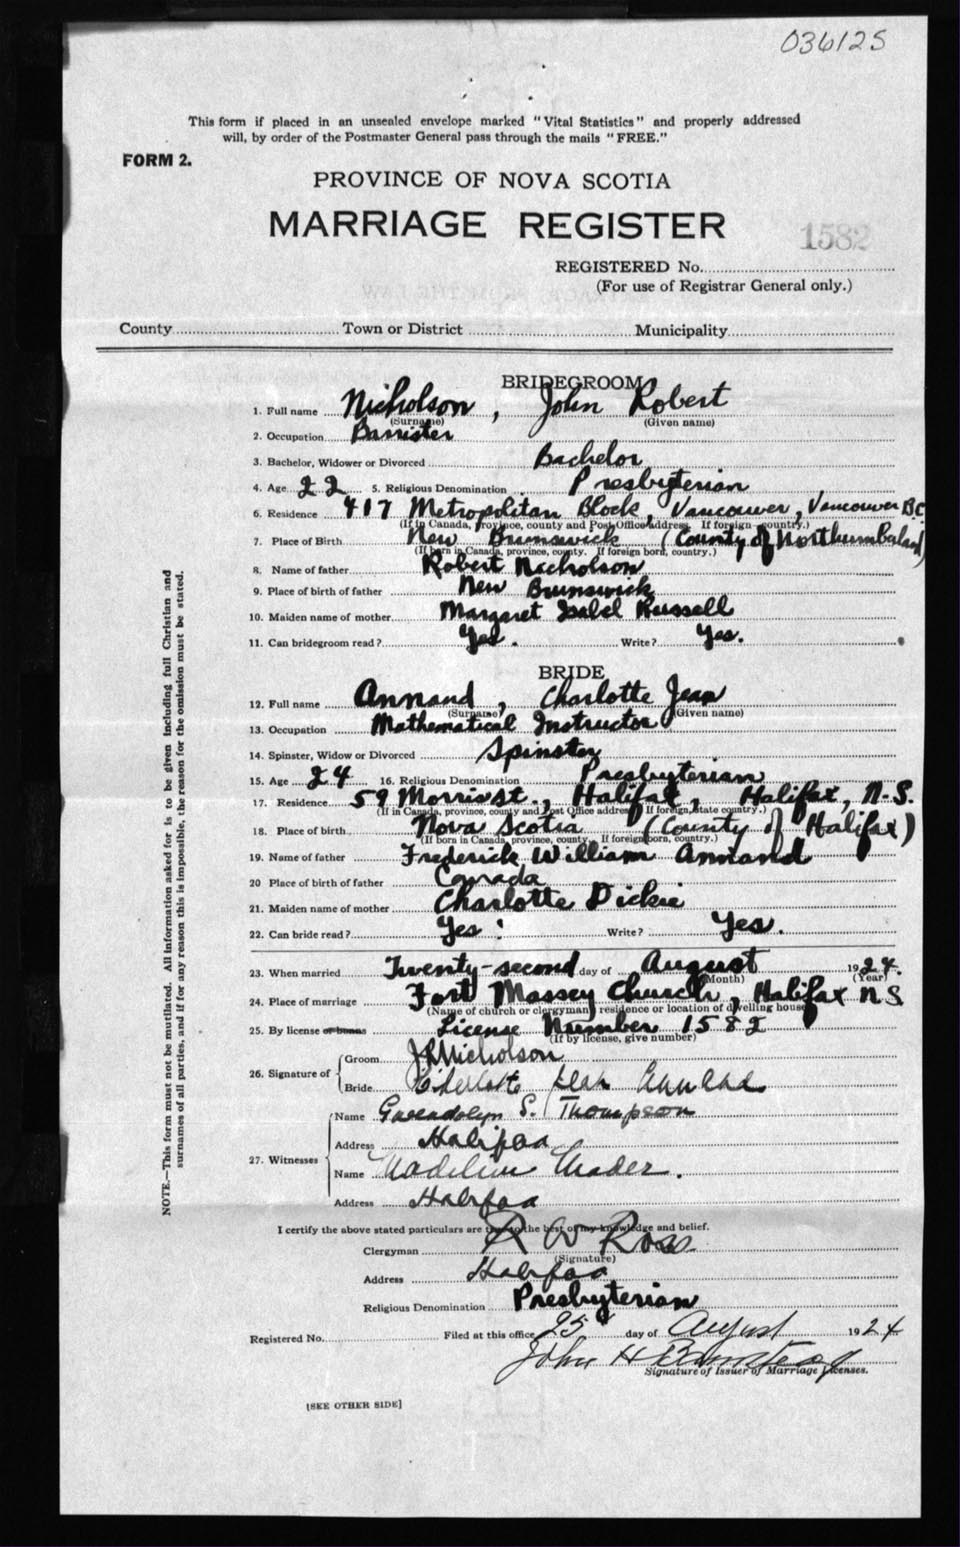 036125
This form if placed in an unsealed envelope marked "Vital Statistics" and properly addressed
will, by order of the Postmaster General pass through the mails "FREE."
FORM 2.
PROVINCE OF NOVA SCOTIA
MARRIAGE REGISTER
1582
REGISTERED No.
(For use of Registrar General only.)
County Town or District Municipality
BRIDEGROOM
1. Full name Nicholson, John Robert
(Surname) (Given name)
2. Occupation Barrister
3. Bachelor, Widower or Divorced Bachelor
4. Age 22 5. Religious Denomination Presbyterian
6. Residence 417 Metropolitan Block, Vancouver, Vancouver BC
(If in Canada, province, county and Post Office address. If foreign country.)
7. Place of Birth New Brunswick (County of Northumberland)
(If born in Canada, province, county. If foreign born, country.)
8. Name of father Robert Nicholson
9. Place of birth of father New Brunswick
10. Maiden name of mother Margaret Isabel Russell
11. Can bridegroom read? Yes. Write? Yes.
BRIDE
12. Full name Annand, Charlotte Jean
(Surname) (Given name)
13. Occupation Mathematical Instructor
14. Spinster, Widow or Divorced Spinster
15. Age 24 16. Religious Denomination Presbyterian
17. Residence 59 Morris st., Halifax, Halifax, N.S.
(If in Canada, province, county and Post Office address. If foreign, state country.)
18. Place of birth Nova Scotia (County of Halifax)
(If born in Canada, province, county. If foreign born, country.)
19. Name of father Frederick William Annand
20 Place of birth of father Canada
21. Maiden name of mother Charlotte Dickie
22. Can bride read? Yes. Write? Yes.
23. When married Twenty-second day of August 1924.
(Month) (Year)
24. Place of marriage Fort Massey Church, Halifax N S
(Name of church or clergyman, residence or location of dwelling house)
25. By license or banns License Number 1582
(If by license, give number)
26. Signature of Groom J R Nicholson
Bride Charlotte Jean Annand
27. Witnesses Name Gwendolyn S. Thompson
Address Halifax
Name Madeline Mader.
Address Halifax
I certify the above stated particulars are true to the best of my knowledge and belief.
Clergyman R W Ross.
(Signature)
Address Halifax
Religious Denomination Presbyterian
Registered No. Filed at this office 25 day of August 1924
John H Barnstead
Signature of Issuer of Marriage Licenses.
[SEE OTHER SIDE]
NOTE.—This form must not be mutilated. All information asked for is to be given including full Christian and
surnames of all parties, and if for any reason this is impossible, the reason for the omission must be stated.